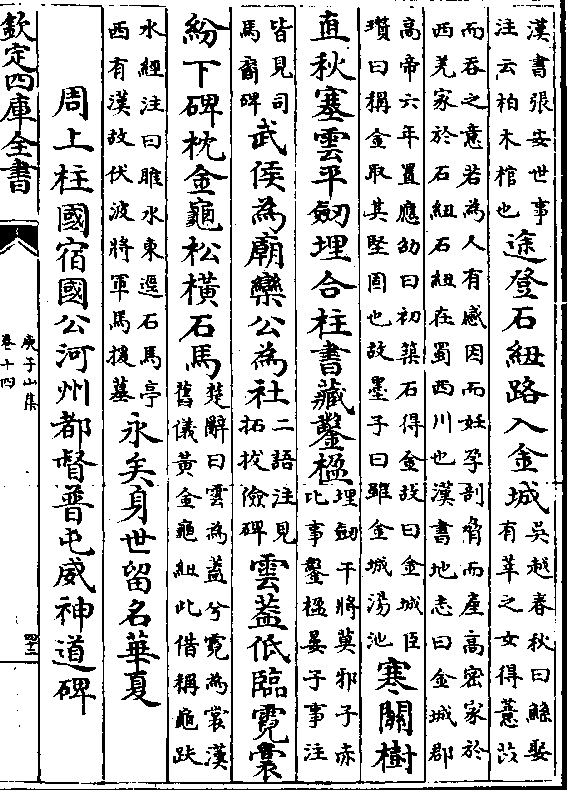 漢書張安世事
注云柏木棺也
途登石紐路入金城
吳越春秋曰鯀娶
有莘之女得薏苡
而吞之意若為人有感因而妊孕剖脅而產高密家於
西羌家於石紐石紐在蜀西川也漢書地志曰金城郡
高帝六年置應劭曰初築石得金故曰金城臣
瓚曰稱金取其堅固也故墨子曰雖金城湯池
寒關樹
直秋塞雲平劔埋合柱書藏鑿楹
埋劔干將莫邪子赤
比事鑿楹晏子事注
皆見司
馬裔碑
武侯為廟欒公為社
二語注見
拓拔儉碑
雲蓋低臨霓裳
紛下碑枕金龜松橫石馬
楚辭曰雲為蓋兮霓為裳漢
舊儀黃金龜紐此借稱龜趺
水經注曰睢水東逕石馬亭
西有漢故伏波將軍馬援墓
永矣身世留名華夏
周上柱國宿國公河州都督普屯威神道碑
欽定四庫全書
庾子山集
卷十四